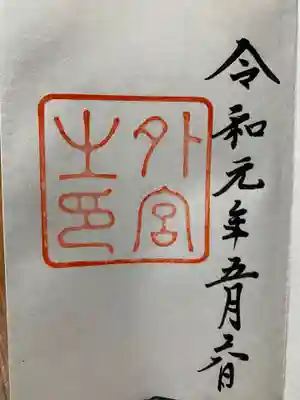 令和元年五月六日
外宮
之印